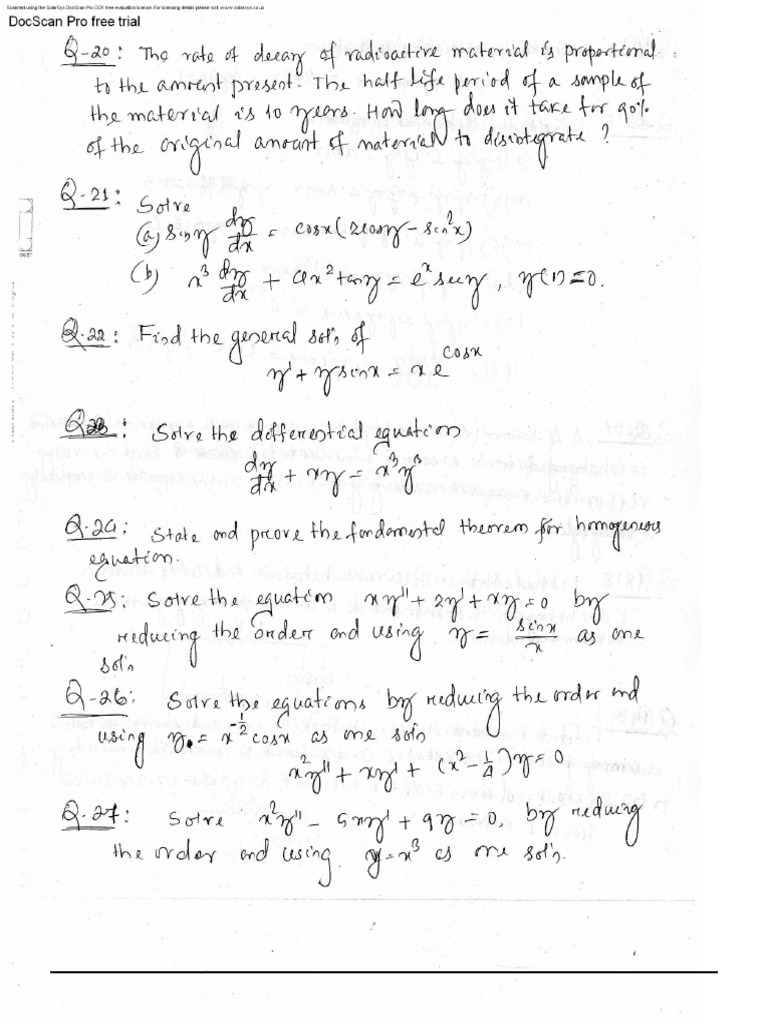 Scanned using the SolarSys DocScan Pro OCR free evaluation license. For licensing details please visit www.solarsys.co.uk
DocScan Pro free trial
Q-20: The rate of decay of radioactive material is proportional
to the amount present. The half life period of a sample of
the material is 10 years. How long does it take for 90%
of the original amount of material to disintegrate?
Q-21: Solve
(a) siny dy/dx = cosx(2cosy - sin²x)
(b) x³ dy/dx + 4x² tany = eˣ secy, y(1)=0.
Q-22: Find the general sol'n of
y' + y sinx = x e^cosx
Q-23: Solve the differential equation
dy/dx + xy = x³y³
Q-24: State and prove the fundamental theorem for homogenous
equation.
Q-25: Solve the equation xy'' + 2y' + xy = 0 by
reducing the order and using y = sinx/x as one
sol'n
Q-26: Solve the equations by reducing the order and
using y = x^-1/2 cosx as one sol'n
x²y'' + xy' + (x² - 1/4)y = 0
Q-27: Solve x²y'' - 5xy' + 9y = 0, by reducing
the order and using y = x³ as one sol'n.